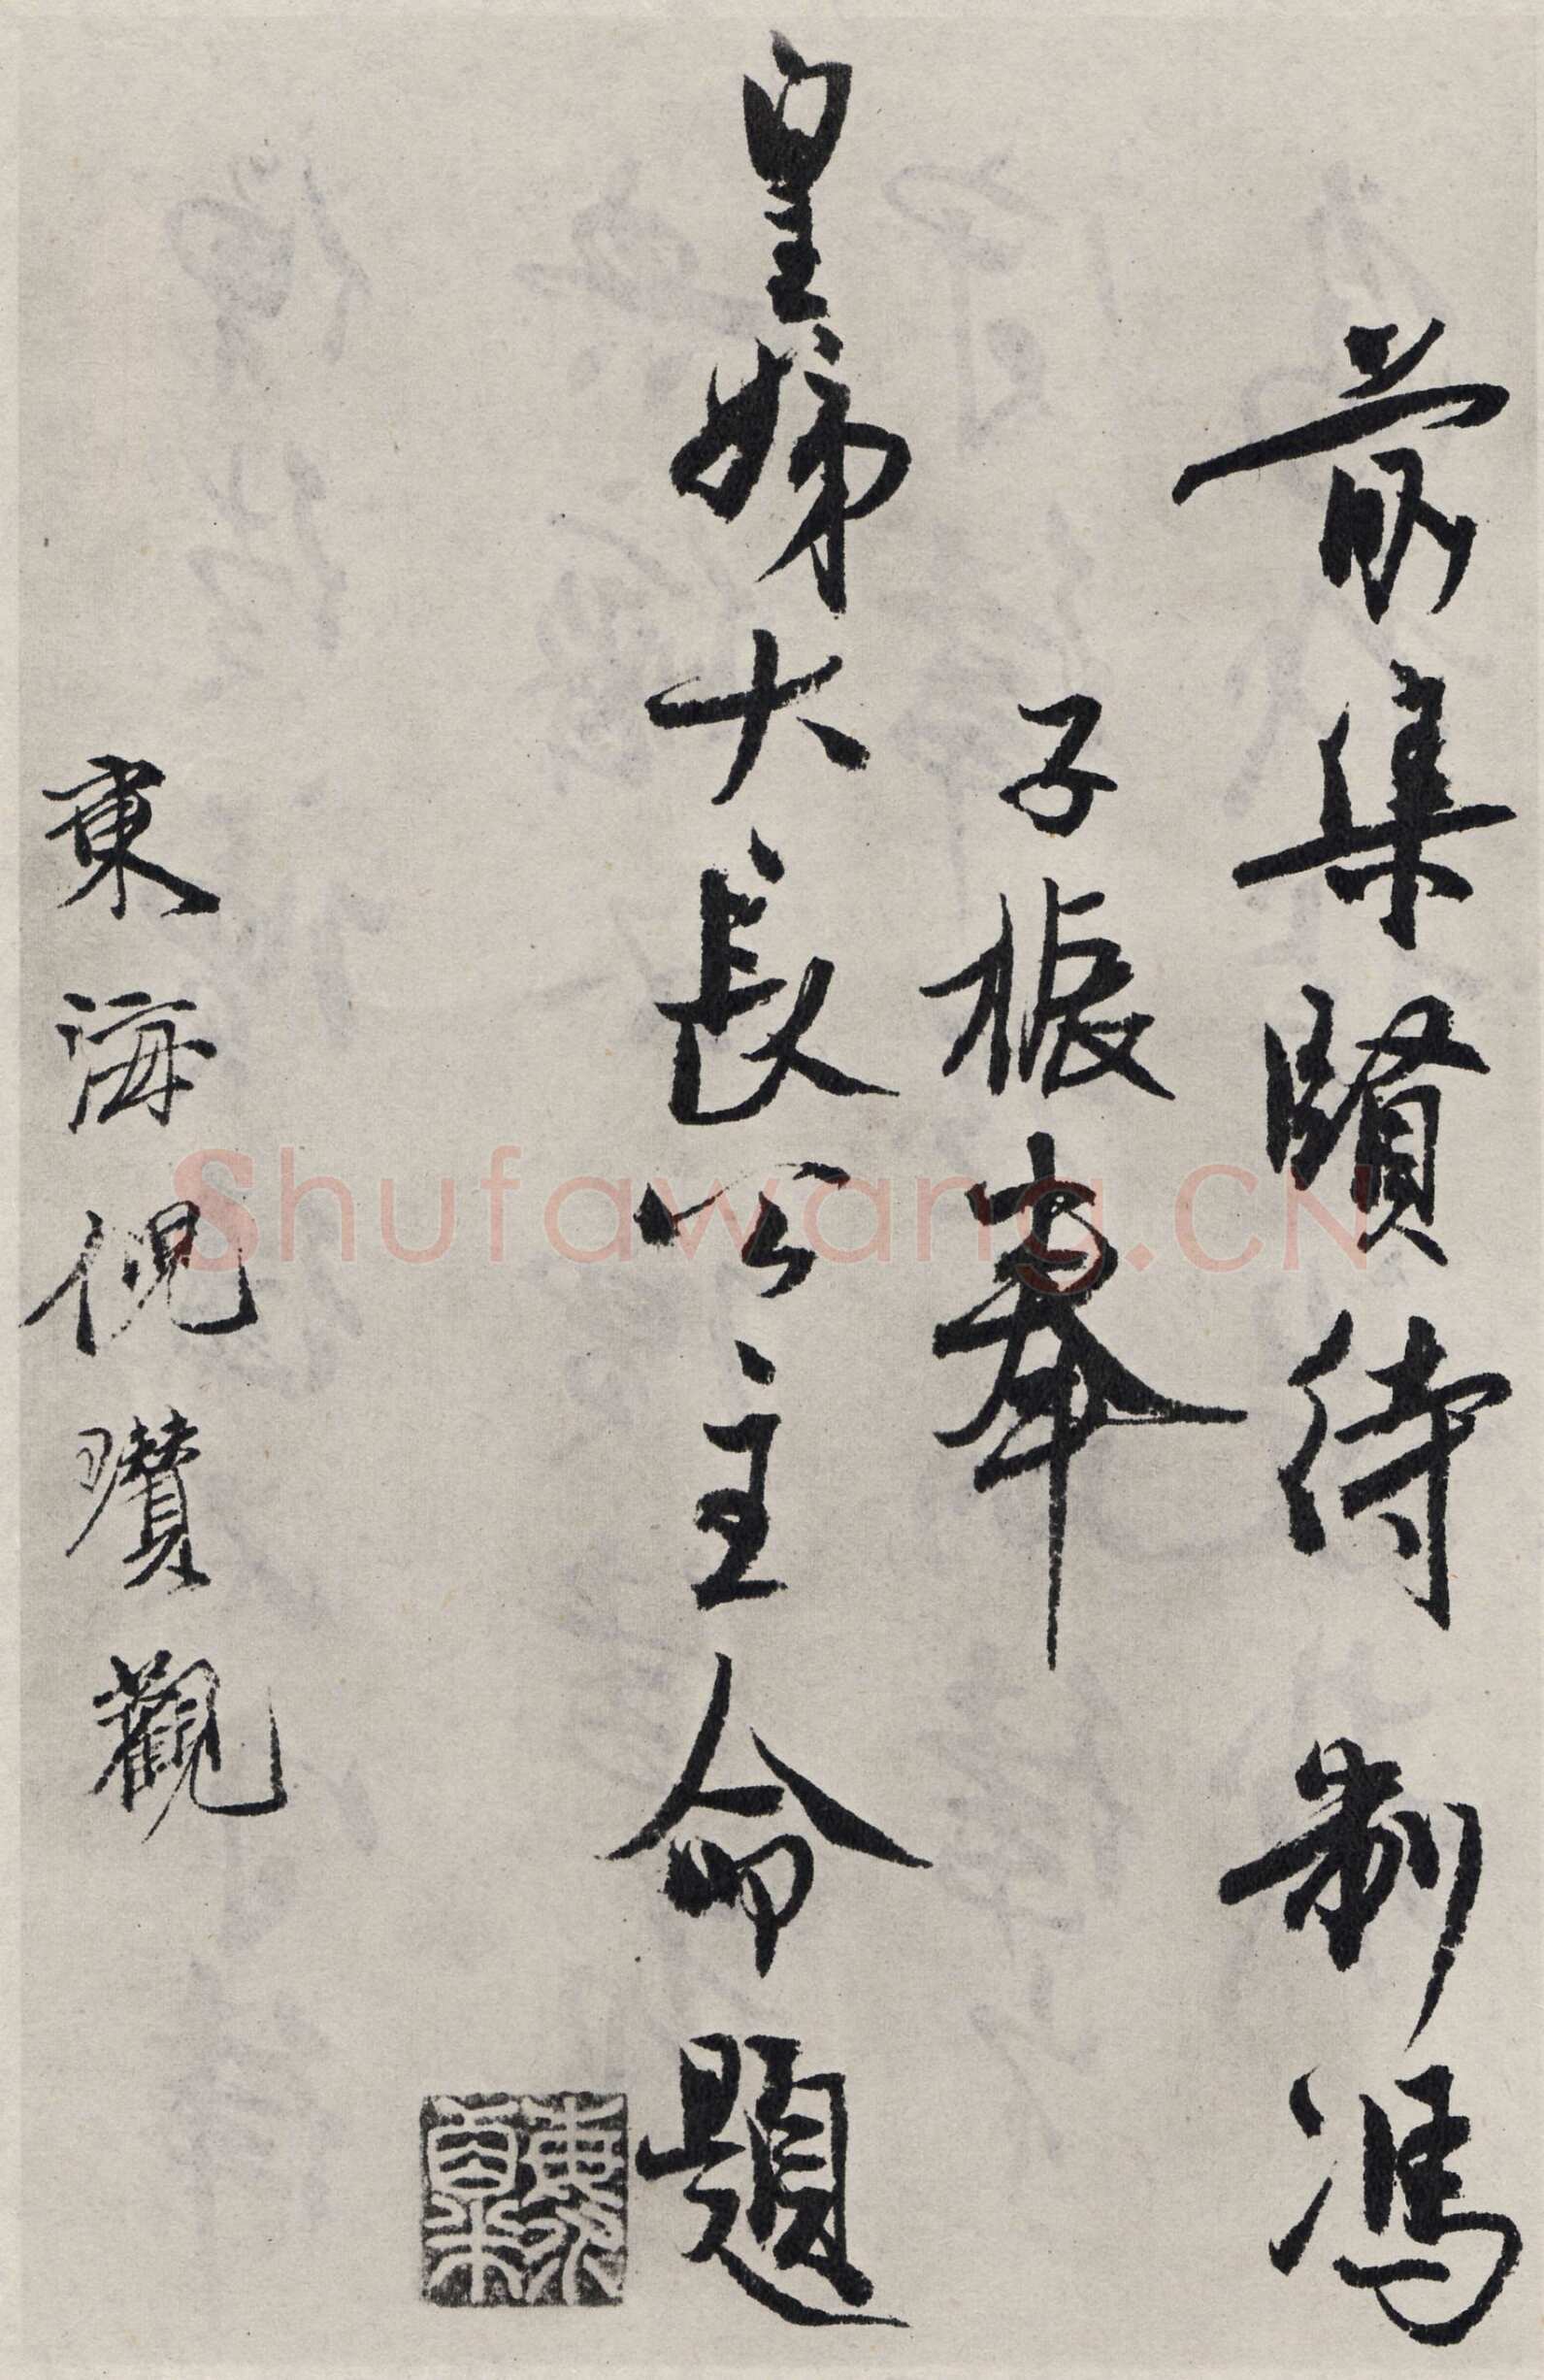 前集賢待制馮
子振奉
皇姊大長公主命題
東海倪瓚觀
Shufawang.CN